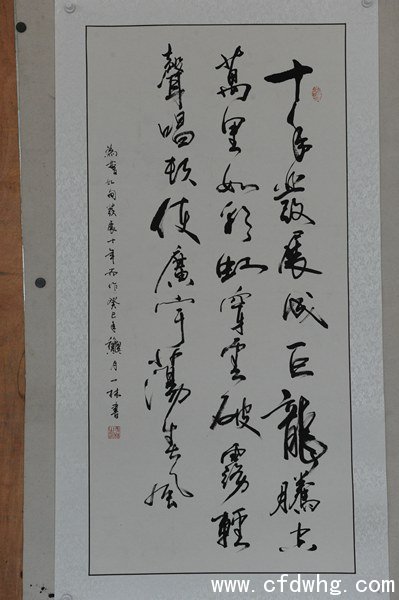 十年發展成巨龍騰空
萬里如彩虹穿雲破霧輕
聲唱頓使廣宇蕩春風
為曹妃甸發展十年而作癸巳年龝月一林書
www.cfdwhg.com